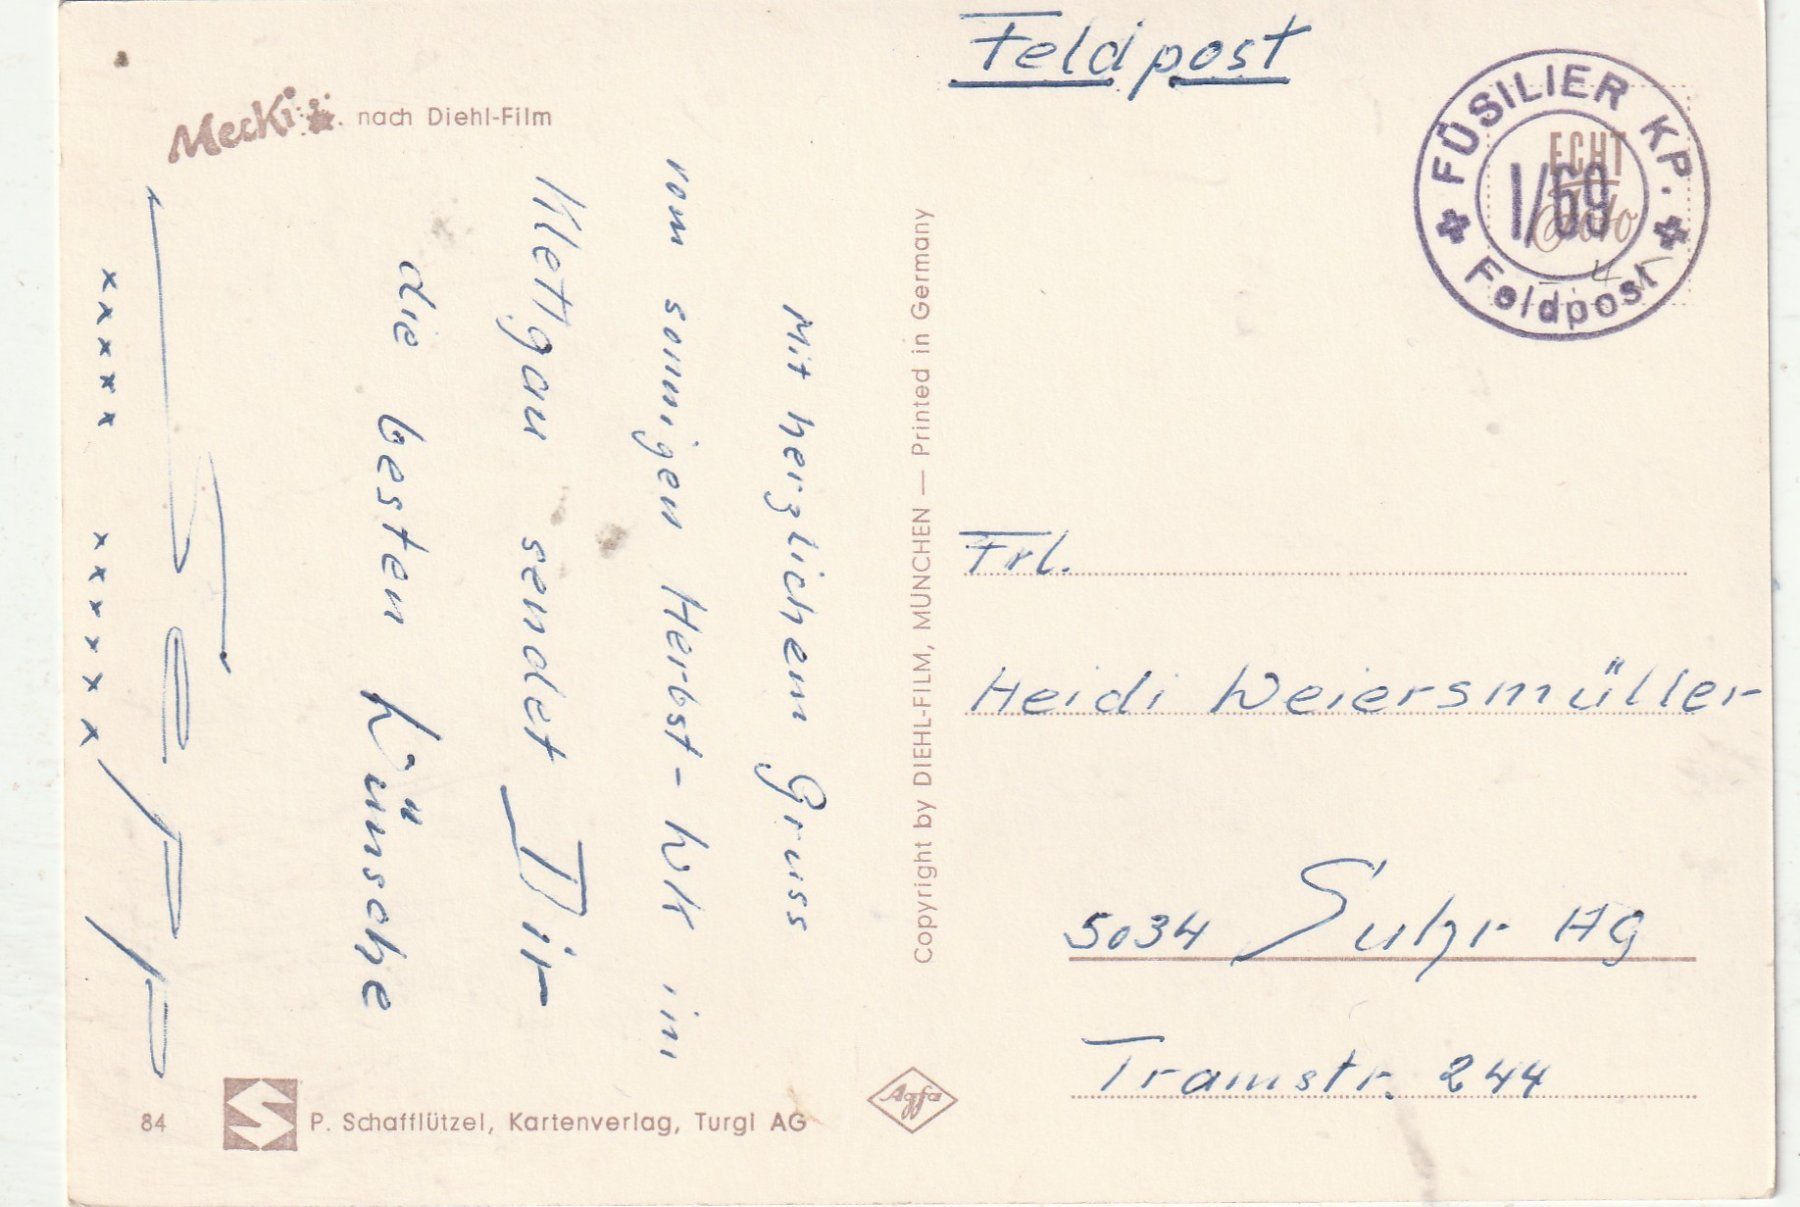 Mecki nach Diehl-Film
Mit herzlichem Gruss
vom sonnigen Herbst-WK im
Klettgau sendet Dir
die besten Wünsche
Sepp
x x x x x x x x x x x
84
P. Schafflützel, Kartenverlag, Turgi AG
Copyright by DIEHL-FILM, MÜNCHEN — Printed in Germany
Agfa
Feldpost
FÜSILIER KP.
I/69
Feldpost
ECHT
Foto
Frl.
Heidi Weiersmüller
5034 Suhr AG
Tramstr. 244